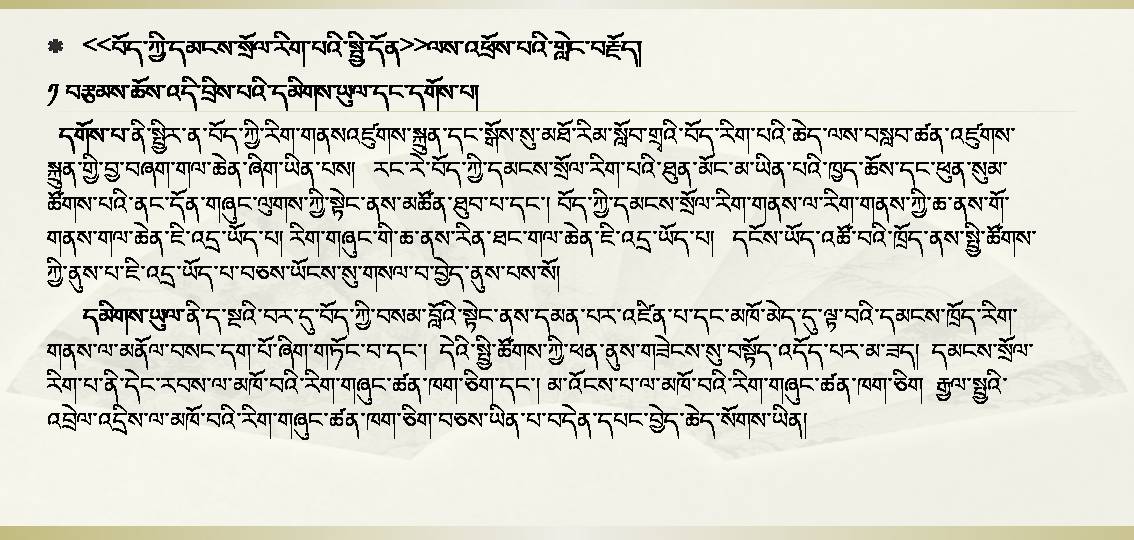 <<བོད་ཀྱི་དམངས་སྲོལ་རིག་པའི་སྤྱི་དོན>>ལས་འཕྲོས་པའི་གླེང་བརྗོད།
༡ བརྩམས་ཆོས་འདི་བྲིས་པའི་དམིགས་ཡུལ་དང་དགོས་པ།
དགོས་པ་ནི་སྤྱིར་ན་བོད་ཀྱི་རིག་གནསའཛུགས་སྐྲུན་དང་སྒོས་སུ་མཐོ་རིམ་སློབ་གྲྭའི་བོད་རིག་པའི་ཆེད་ལས་བསླབ་ཚན་འཛུགས་
སྐྲུན་གྱི་བྱ་བཞག་གལ་ཆེན་ཞིག་ཡིན་པས། རང་རེ་བོད་ཀྱི་དམངས་སྲོལ་རིག་པའི་ཐུན་མོང་མ་ཡིན་པའི་ཁྱད་ཆོས་དང་ཕུན་སུམ་
ཚོགས་པའི་ནང་དོན་གཞུང་ལུགས་ཀྱི་སྟེང་ནས་མཚོན་ཐུབ་པ་དང་། བོད་ཀྱི་དམངས་སྲོལ་རིག་གནས་ལ་རིག་གནས་ཀྱི་ཆ་ནས་གོ་
གནས་གལ་ཆེན་ཇི་འདྲ་ཡོད་པ། རིག་གཞུང་གི་ཆ་ནས་རིན་ཐང་གལ་ཆེན་ཇི་འདྲ་ཡོད་པ། དངོས་ཡོད་འཚོ་བའི་ཁྲོད་ནས་སྤྱི་ཚོགས་
ཀྱི་ནུས་པ་ཇི་འདྲ་ཡོད་པ་བཅས་ཡོངས་སུ་གསལ་བ་བྱེད་ནུས་པས་སོ།
དམིགས་ཡུལ་ནི་ད་སྔའི་བར་དུ་བོད་ཀྱི་བསམ་བློའི་སྟེང་ནས་དམན་པར་འཛིན་པ་དང་མཁོ་མེད་དུ་ལྟ་བའི་དམངས་ཁྲོད་རིག་
གནས་ལ་མནོལ་བསང་དག་པོ་ཞིག་གཏོང་བ་དང་། དེའི་སྤྱི་ཚོགས་ཀྱི་ཕན་ནུས་གཟེངས་སུ་བསྟོད་འདོད་པར་མ་ཟད། དམངས་སྲོལ་
རིག་པ་ནི་དེང་རབས་ལ་མཁོ་བའི་རིག་གཞུང་ཚན་ཁག་ཅིག་དང་། མ་འོངས་པ་ལ་མཁོ་བའི་རིག་གཞུང་ཚན་ཁག་ཅིག རྒྱལ་སྤྱིའི་
འབྲེལ་འདྲིས་ལ་མཁོ་བའི་རིག་གཞུང་ཚན་ཁག་ཅིག་བཅས་ཡིན་པ་བདེན་དཔང་བྱེད་ཆེད་སོགས་ཡིན།